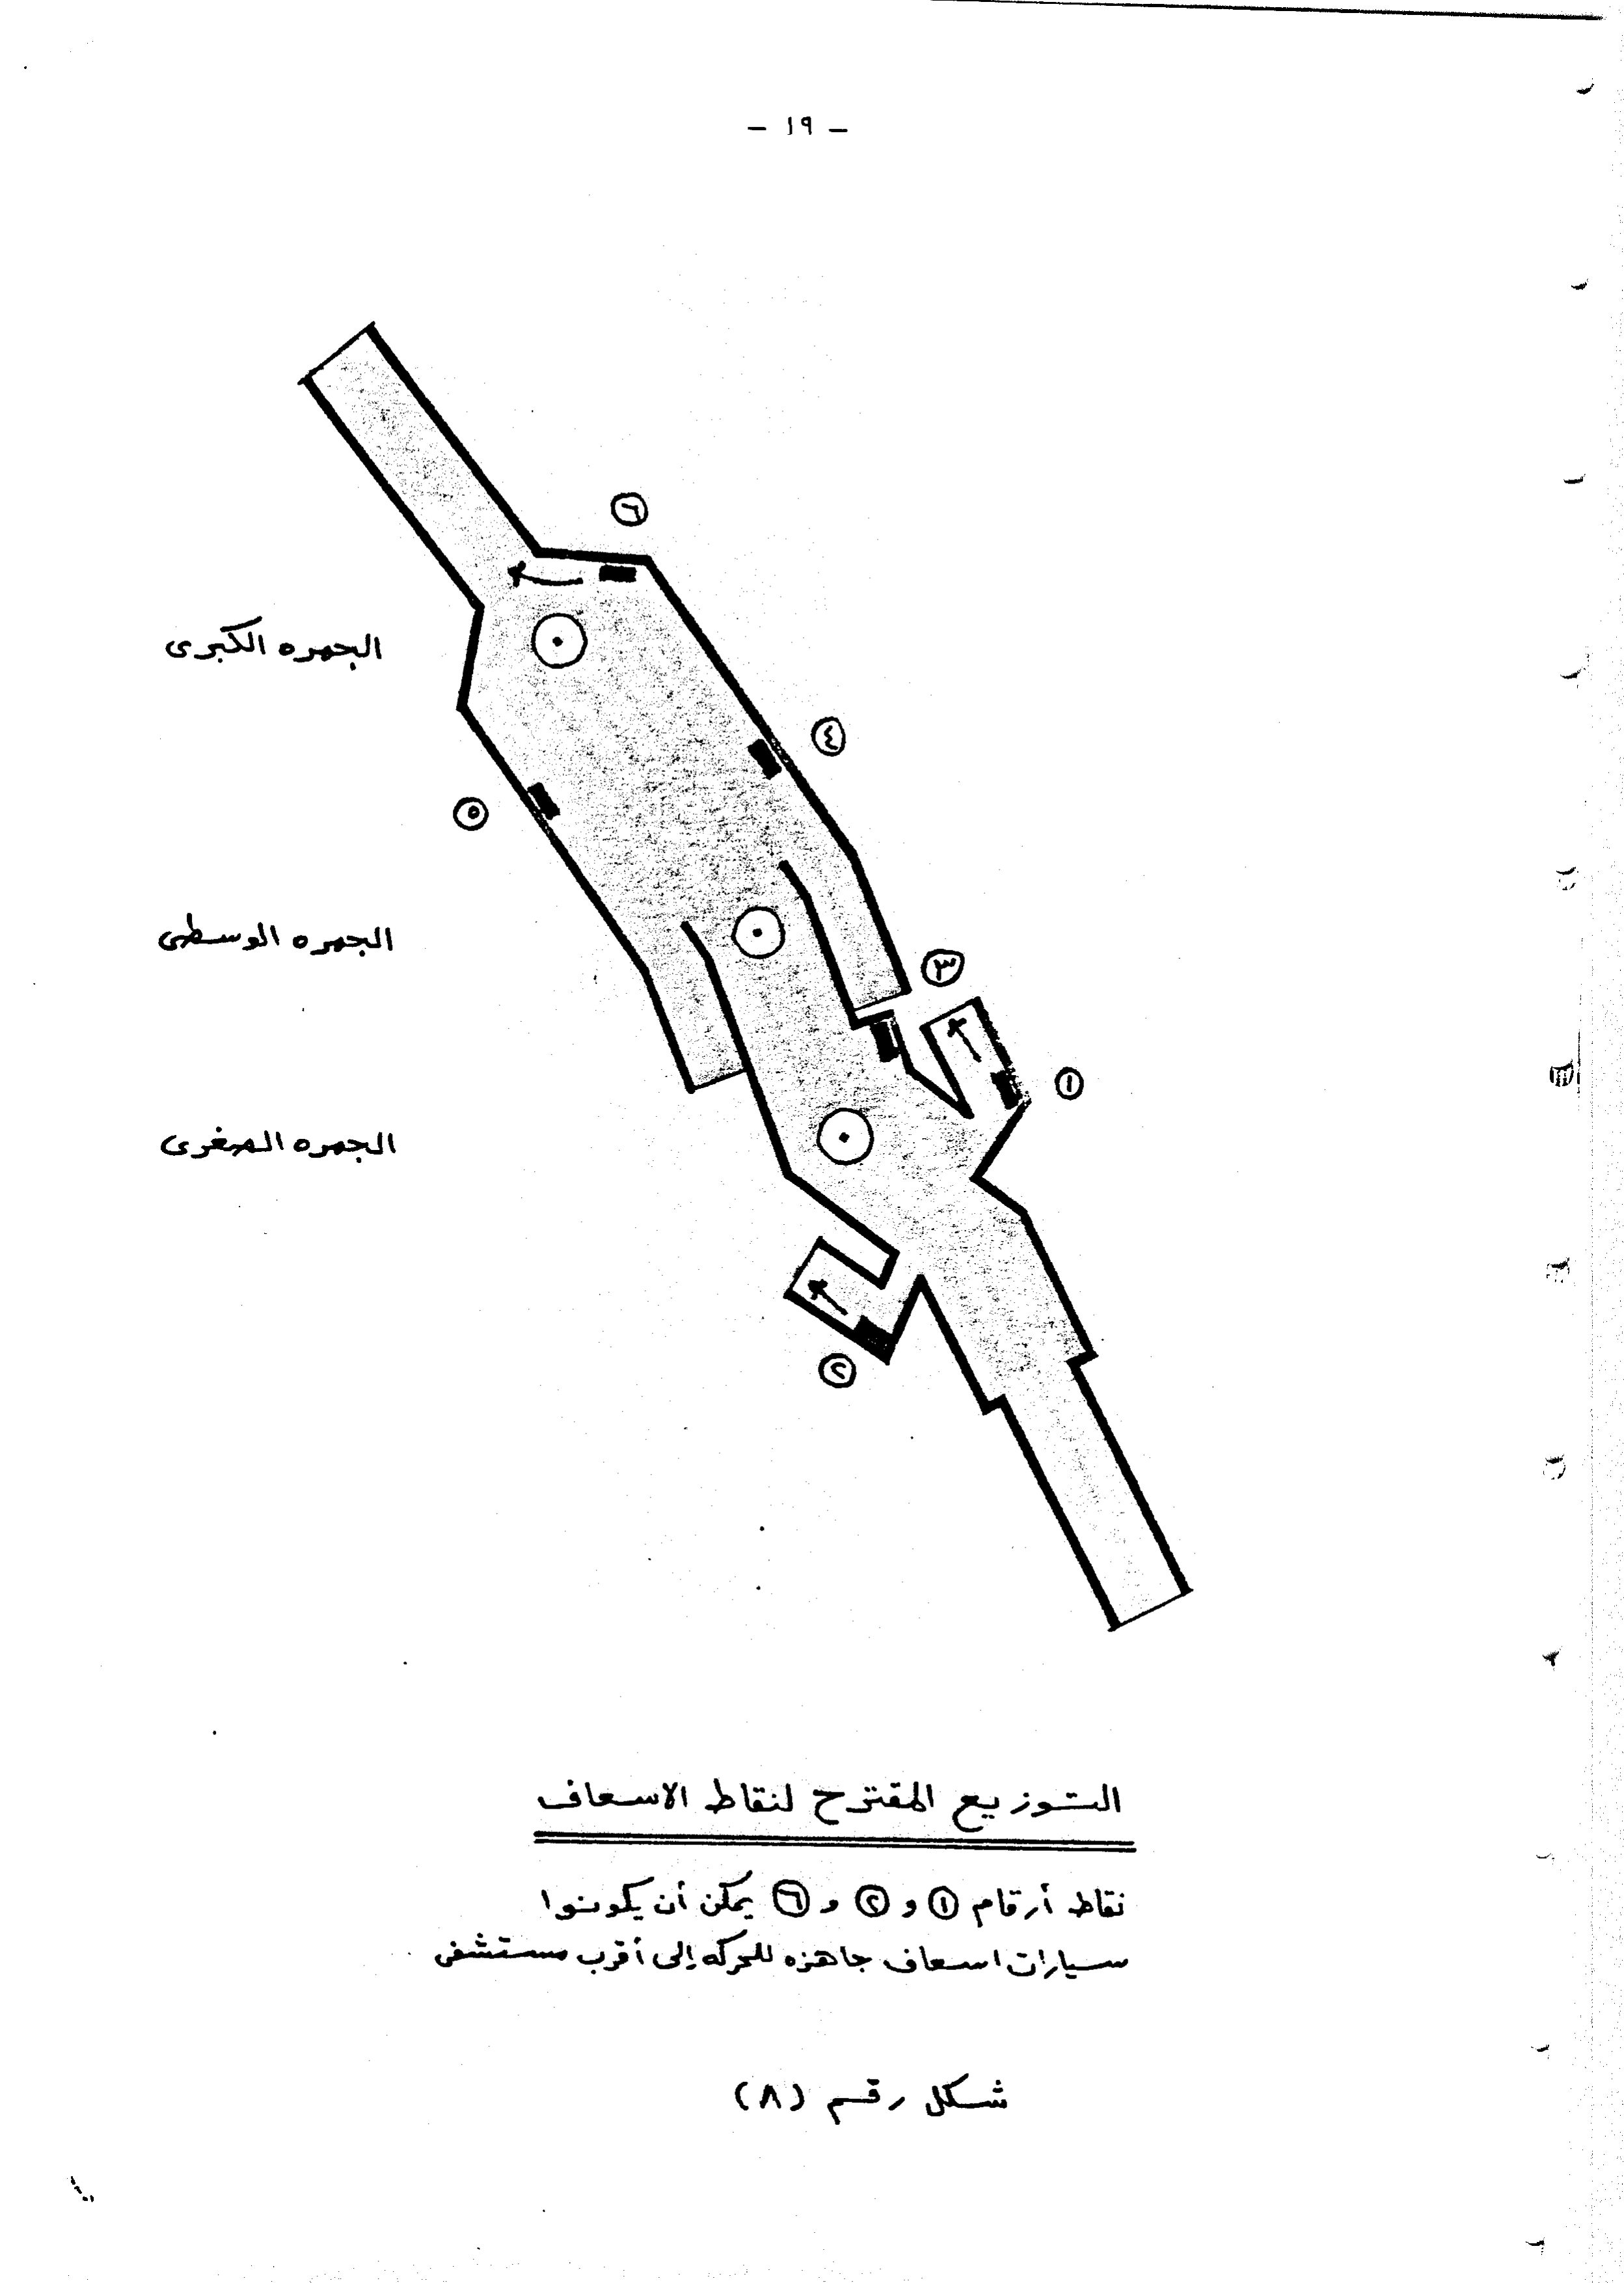 - ١٩ -
٦
الجمره الكبرى
٤
٥
الجمره الوسطى
٣
١
الجمره الصغرى
٢
التوزيع المقترح لنقاط الاسعاف
نقاط أرقام ١ و ٢ و ٦ يمكن أن يكونوا
سيارات اسعاف جاهزه للحركه إلى أقرب مستشفى
شكل رقم (٨)